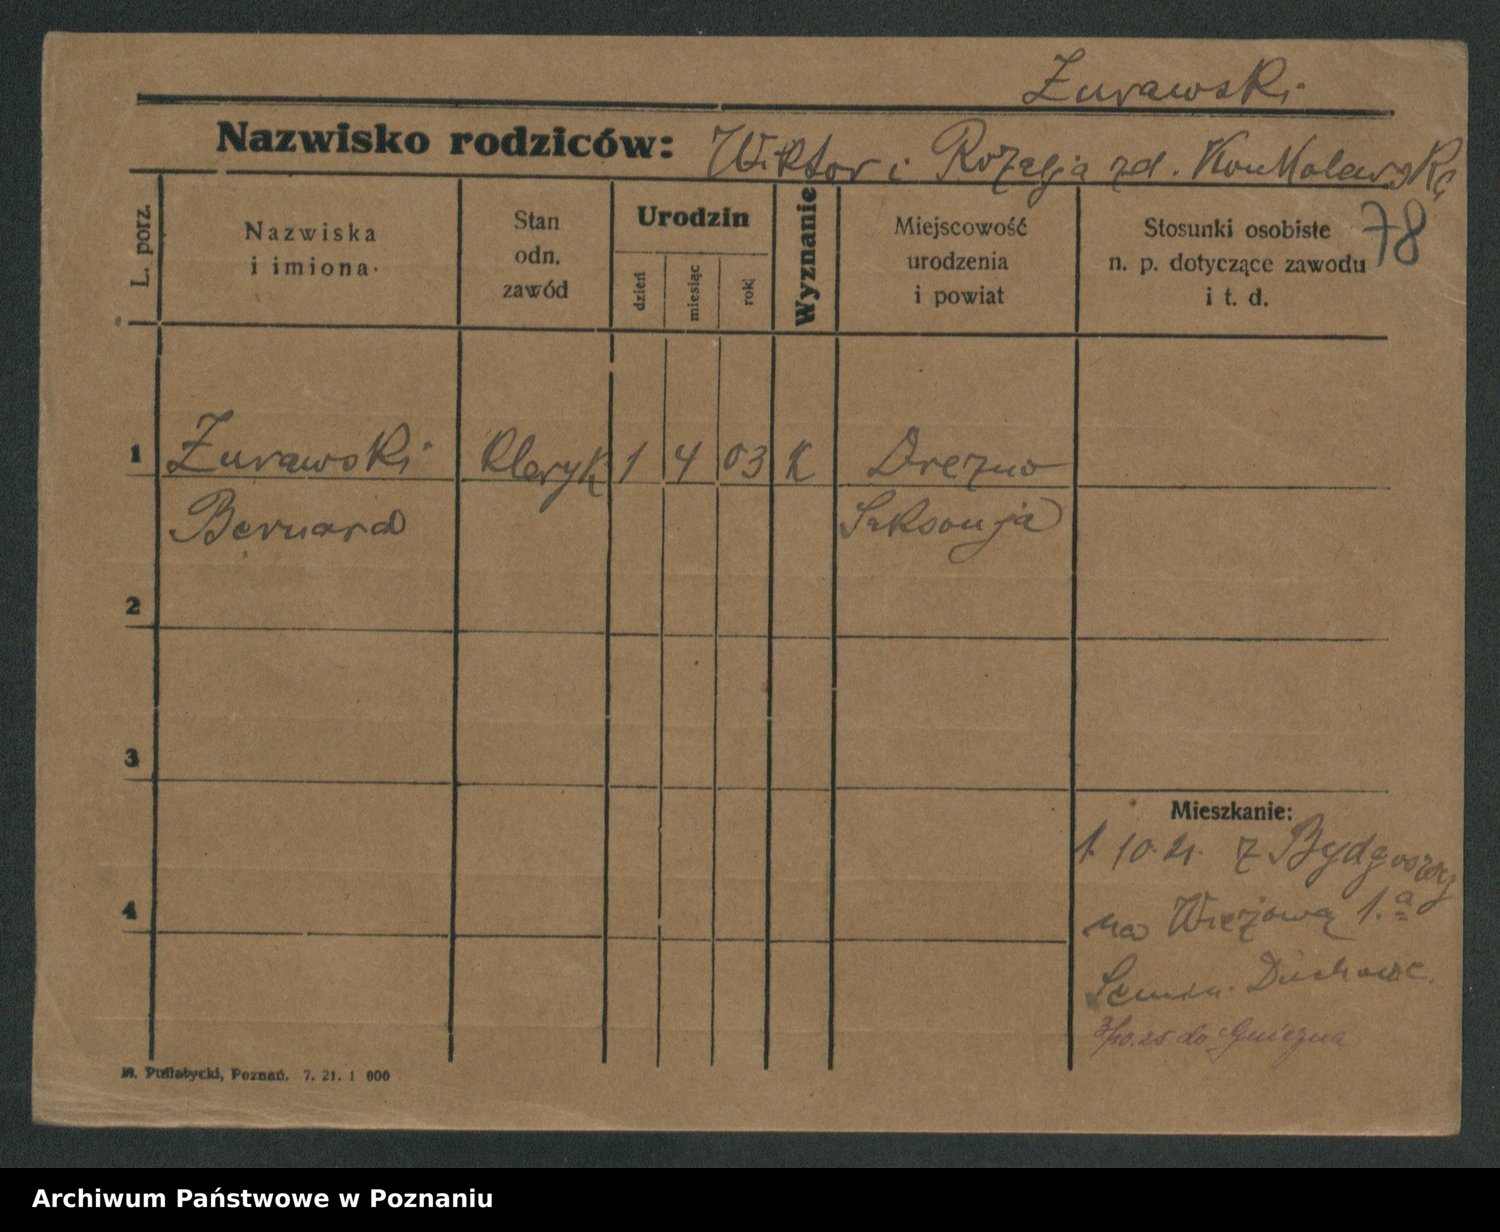 Żurawski
Nazwisko rodziców: Wiktor i Rozalja zd.
78
L. porz.
Nazwiska
i imiona
Stan
odn.
zawód
Urodzin
dzień
miesiąc
rok
Wyznanie
Miejscowość
urodzenia
i powiat
Stosunki osobiste
n. p. dotyczące zawodu
i t. d.
1 Żurawski kleryk 1 4 03 K Drezno
Bernard Saksonja
2
3
4
Mieszkanie:
1. 10. 21. z Bydgoszczy
na Wieżową 1.a
Semin. Duchowe.
3/10.25 do Gniezna
M. Putiatycki, Poznań. 7. 21. 1 000
Archiwum Państwowe w Poznaniu